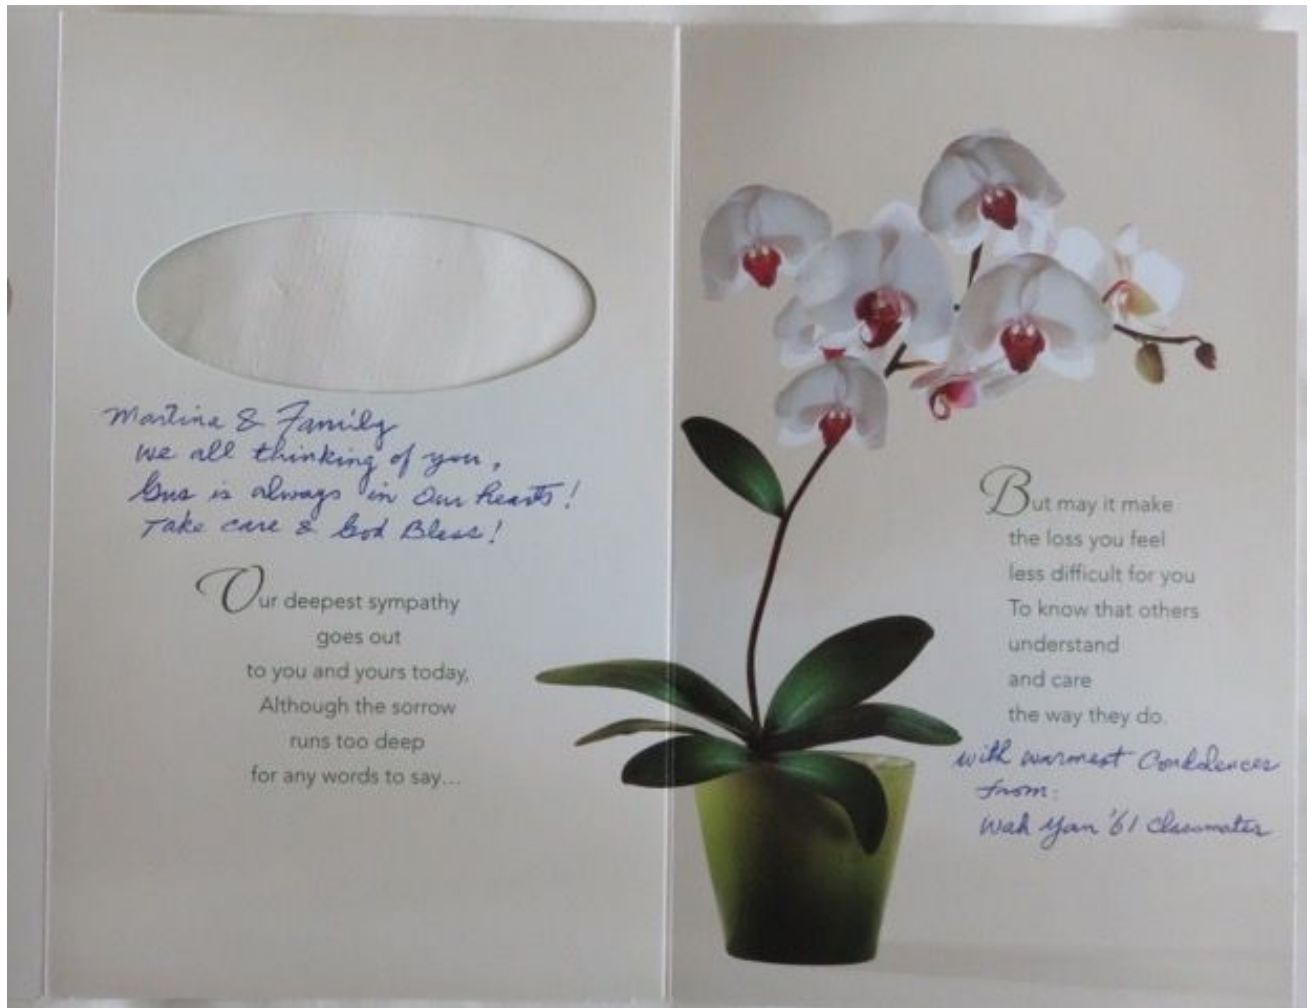 Martina & Family
we all thinking of you,
Gus is always in Our hearts!
Take care & God Bless!
Our deepest sympathy
goes out
to you and yours today,
Although the sorrow
runs too deep
for any words to say...
But may it make
the loss you feel
less difficult for you
To know that others
understand
and care
the way they do.
with warmest Condolences
from:
Wah Yan '61 Classmates